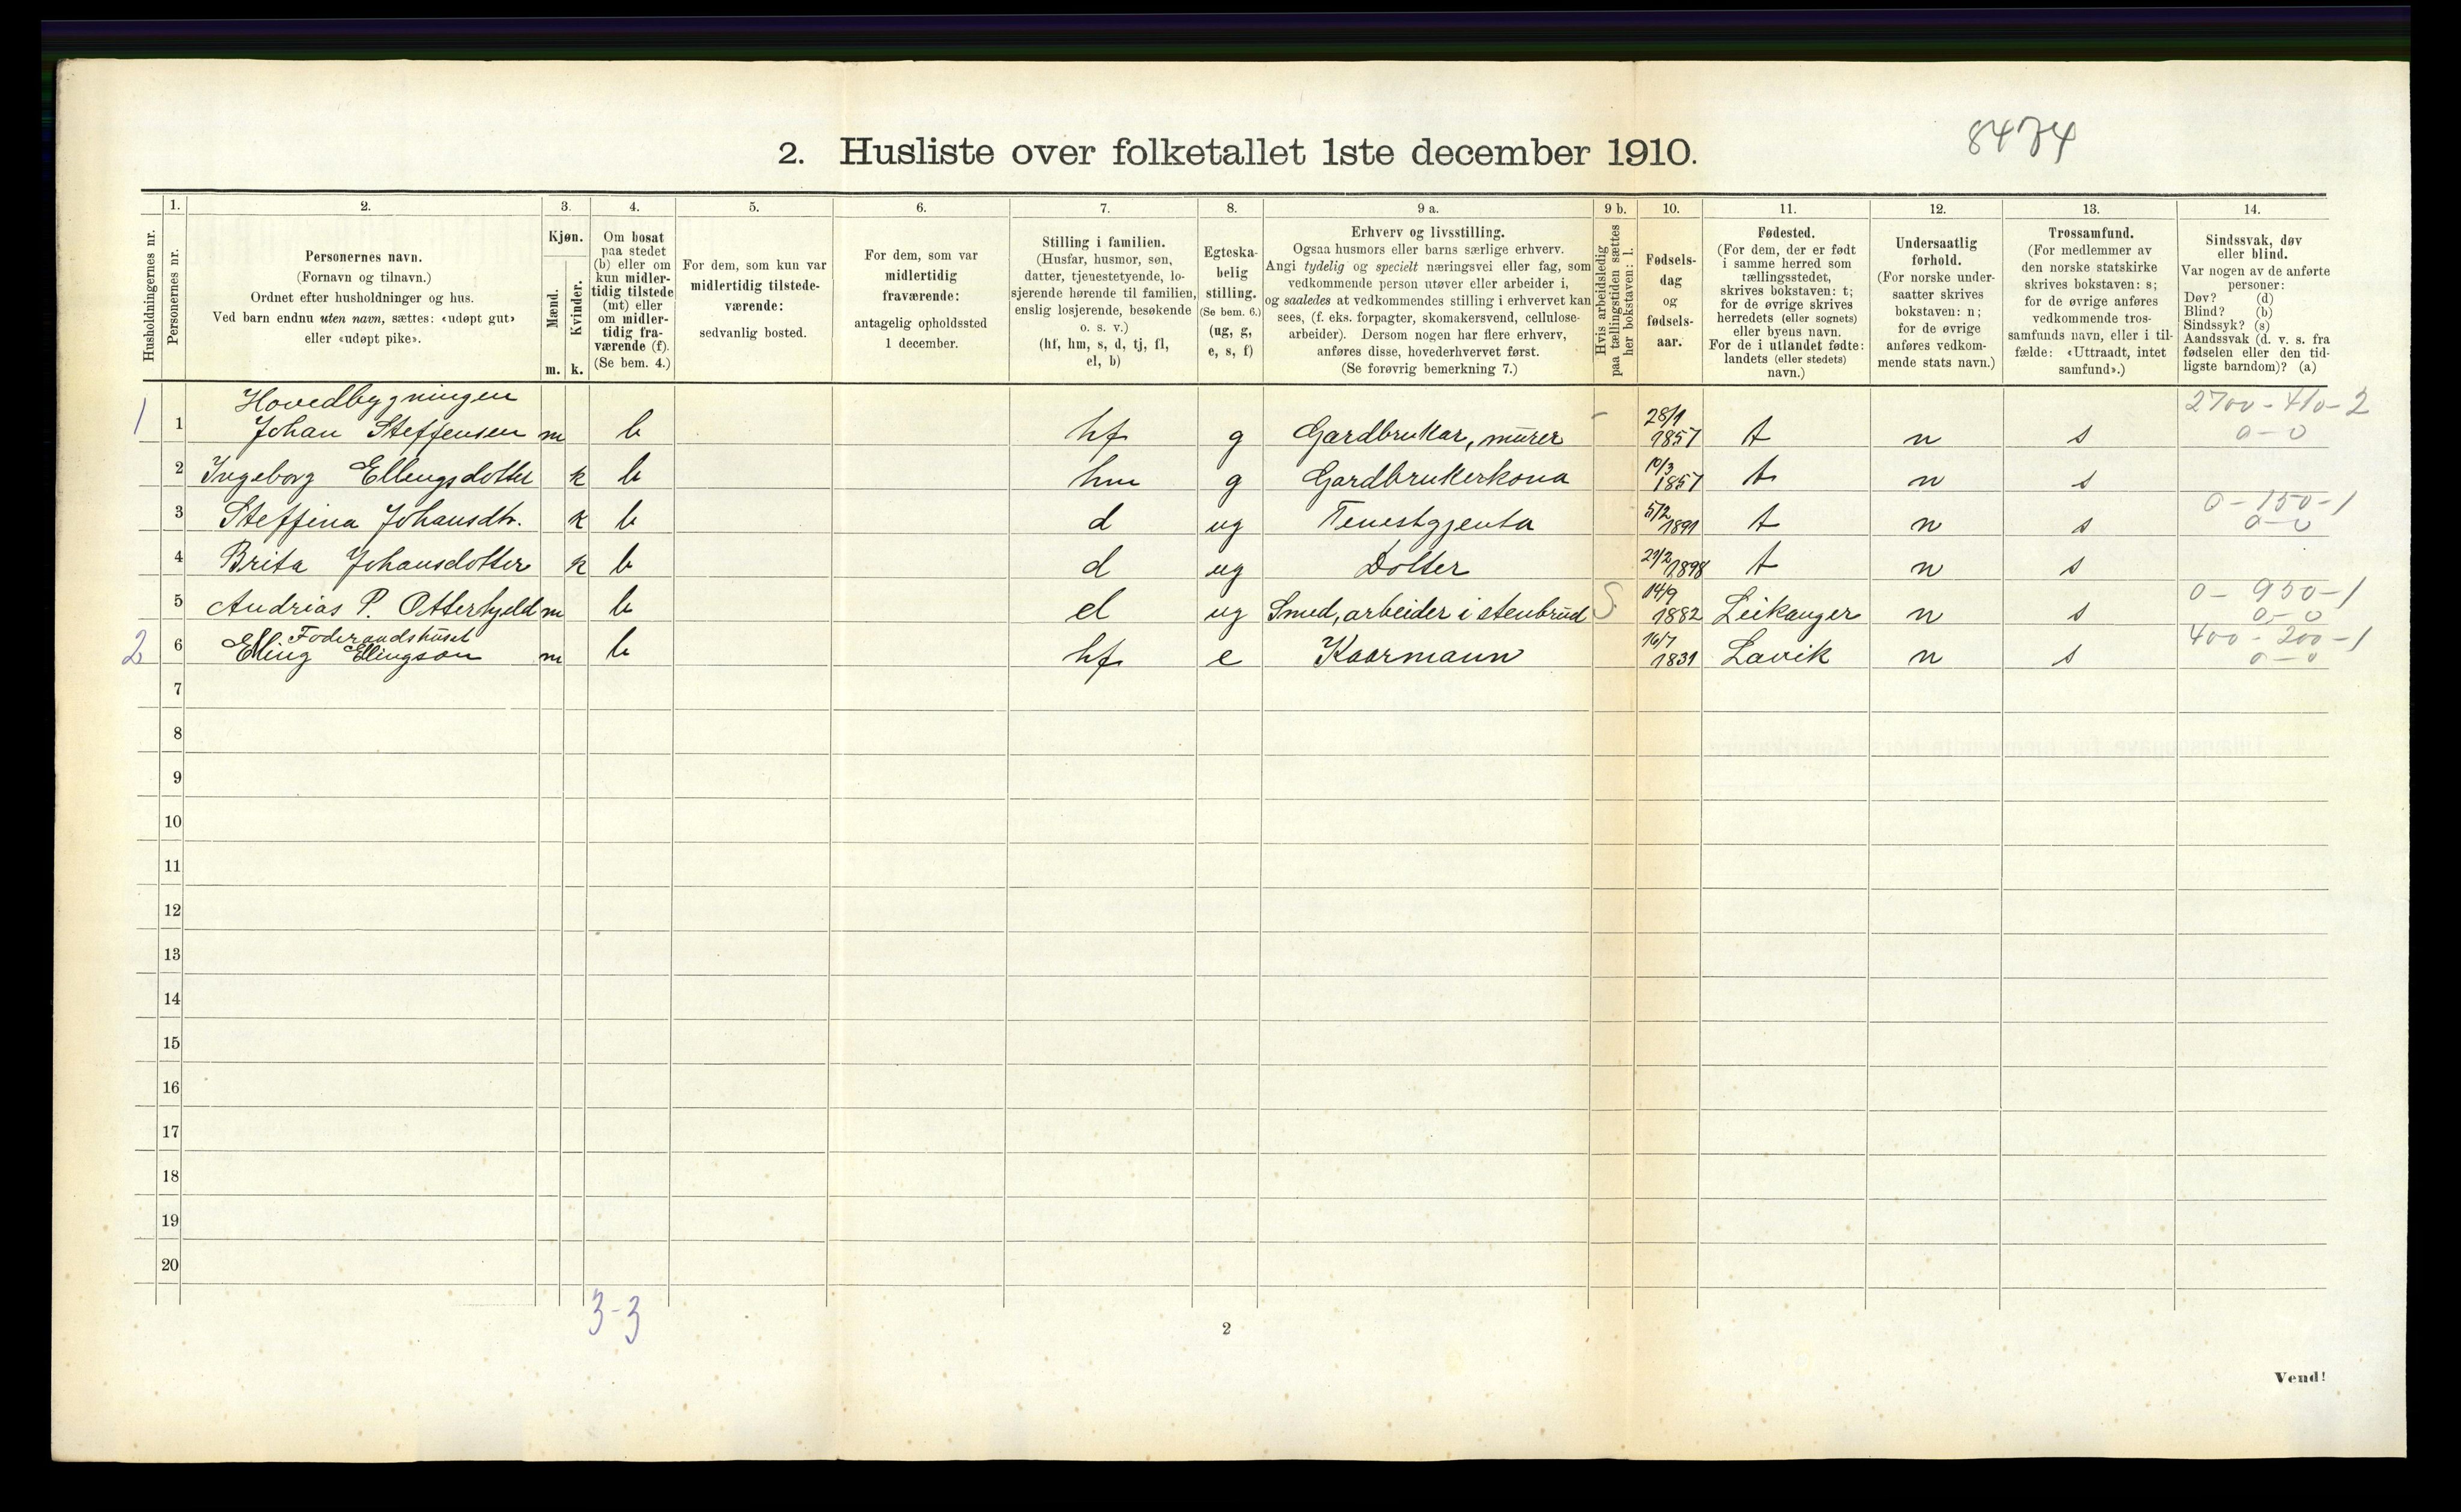 8474
2. Husliste over folketallet 1ste december 1910.
Husholdningernes nr.
1.
Personernes nr.
2.
Personernes navn.
(Fornavn og tilnavn.)
Ordnet efter husholdninger og hus.
Ved barn endnu uten navn, sættes: «udøpt gut»
eller «udøpt pike».
3.
Kjøn.
Mænd.
Kvinder.
m. k.
4.
Om bosat
paa stedet
(b) eller om
kun midler-
tidig tilstede
(mt) eller
om midler-
tidig fra-
værende (f).
(Se bem. 4.)
5.
For dem, som kun var
midlertidig tilstede-
værende:
sedvanlig bosted.
6.
For dem, som var
midlertidig
fraværende:
antagelig opholdssted
1 december.
7.
Stilling i familien.
(Husfar, husmor, søn,
datter, tjenestetyende, lo-
sjerende hørende til familien,
enslig losjerende, besøkende
o. s. v.)
(hf, hm, s, d, tj, fl,
el, b)
8.
Egteska-
belig
stilling.
(Se bem. 6.)
(ug, g,
e, s, f)
9 a.
Erhverv og livsstilling.
Ogsaa husmors eller barns særlige erhverv.
Angi tydelig og specielt næringsvei eller fag, som
vedkommende person utøver eller arbeider i,
og saaledes at vedkommendes stilling i erhvervet kan
sees, (f. eks. forpagter, skomakersvend, cellulose-
arbeider). Dersom nogen har flere erhverv,
anføres disse, hovederhvervet først.
(Se forøvrig bemerkning 7.)
9 b.
Hvis arbeidsledig
paa tællingstiden sættes
her bokstaven: l.
10.
Fødsels-
dag
og
fødsels-
aar.
11.
Fødested.
(For dem, der er født
i samme herred som
tællingsstedet,
skrives bokstaven: t;
for de øvrige skrives
herredets (eller sognets)
eller byens navn.
For de i utlandet fødte:
landets (eller stedets)
navn.)
12.
Undersaatlig
forhold.
(For norske under-
saatter skrives
bokstaven: n;
for de øvrige
anføres vedkom-
mende stats navn.)
13.
Trossamfund.
(For medlemmer av
den norske statskirke
skrives bokstaven: s;
for de øvrige anføres
vedkommende tros-
samfunds navn, eller i til-
fælde: «Uttraadt, intet
samfund».)
14.
Sindssvak, døv
eller blind.
Var nogen av de anførte
personer:
Døv? (d)
Blind? (b)
Sindssyk? (s)
Aandssvak (d. v. s. fra
fødselen eller den tid-
ligste barndom)? (a)
Hovedbygningen 2700-410-2
1 1 Johan Steffensen m b hf g Gardbrukar, murer - 28/1 1857 t n s 0-0
2 Ingeborg Ellengsdotter k b hm g Gardbrukerkona 10/3 1857 t n s
0-150-1
3 Steffina Johansdtr. k b d ug Tenestgjenta 5/2 1891 t n s 0-0
4 Brita Johansdotter k b d ug Dotter 21/2 1898 t n s
0-950-1
5 Andrias P. Otterhjeld m b el ug Smed, arbeider i stenbrud S 14/9 1882 Leikanger n s 0-0
Foderaadshuset 400-200-1
2 6 Elling Ellingson m b hf e Kaarmann 16/7 1831 Lavik n s 0-0
7
8
9
10
11
12
13
14
15
16
17
18
19
20
3-3
2
Vend!